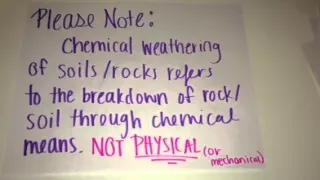 Please Note:
Chemical weathering
of soils/rocks refers
to the breakdown of rock/
soil through chemical
means. NOT PHYSICAL (or
mechanical)